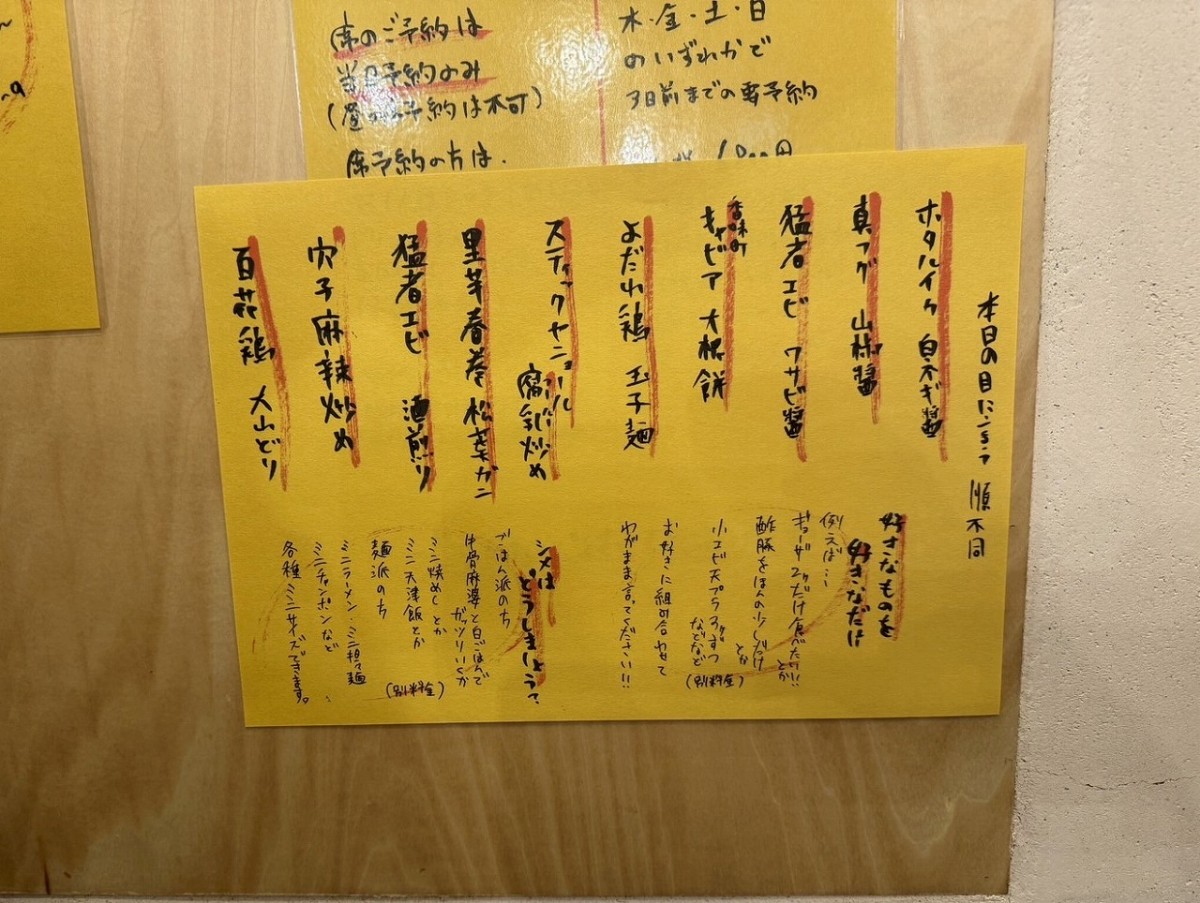 席のご予約は
当日予約のみ
予約は不可)
席予約の方は、
水・金・土・日
のいずれかで
3日前までの要予約
本日の目にもとまって 順不同
ホタルイカ 白ネギ醤
真フグ 山椒醤
猛者エビ ワサビ醤
香味町
キャビア 大根餅
よだれ鶏 玉子麺
スティックセニョール
腐乳炒め
里芋春巻 松葉ガニ
猛者エビ 酒煎り
穴子麻辣炒め
百花鶏 大山どり
好きなものを
好きなだけ
例えば…
ギョーザ2ケだけ食べたい!!とか
酢豚をほんの少しだけ
とか
小エビ天プラ3ケずつ
などなど
(別料金)
お好きに組み合わせて
わがまま言ってください!!
シメは
どうしましょう?
ごはん派のち
牛骨麻婆と白ごはんで
ガッツリいくか
ミニ焼めしとか
ミニ天津飯とか
(別料金)
麺派のち
ミニラーメン・ミニ担々麺
ミニチャンポンなど
各種ミニサイズできます。